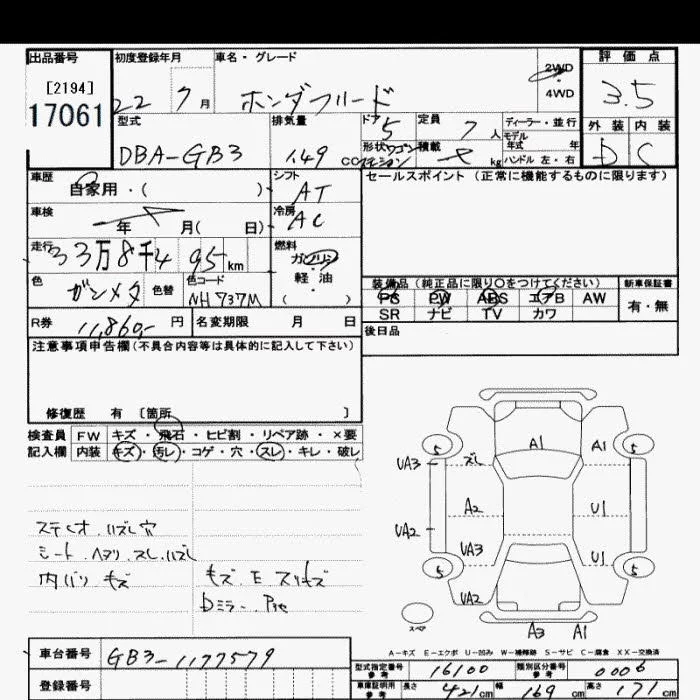 出品番号 初度登録年月 車名・グレード 2WD ・ 4WD 評価点
[2194]
17061 22 7月 ホンダフリード 3.5
型式 排気量 ドア 5 定員 7人 ディーラー・並行 外装 内装
DBA-GB3 1.49 CC 形状 ワゴン 積載 kg モデル年式 年 ハンドル 左・右 D C
車歴 自家用・( ) シフト AT セールスポイント(正常に機能するものに限ります)
車検 年 月( 日) 冷房 AC
走行 33万8千495km 燃料 ガソリン・軽油 ( )
色 ガンメタ 色替 色コード NH737M
装備品(純正品に限り○をつけてください) 新車保証書
PS PW ABS エアB AW 有・無
SR ナビ TV カワ
R券 11,860- 円 名変期限 月 日
後日品
注意事項申告欄(不具合内容等は具体的に記入して下さい)
修復歴 有 〔箇所 〕
検査員 FW キズ・飛石・ヒビ割・リペア跡・×要
記入欄 内装 キズ・汚レ・コゲ・穴・スレ・キレ・破レ
A1 A1 5 5
UA3 ズレ
A2 U1
UA2
UA3 U1
5 5
UA2
スペア
A3 A1
ステレオ ハズレ 穴
シート ヘタリ スレ ハズレ
内バリ キズ
キズ E スリキズ
Dミラー
A-キズ E-エクボ U-凹み W-補修跡 S-サビ C-腐食 XX-交換済
車台番号 GB3-1177579
型式指定番号 参考 16100 類別区分番号 参考 0006
登録番号
車庫証明用 参考 長さ 421cm 幅 169cm 高さ 171cm